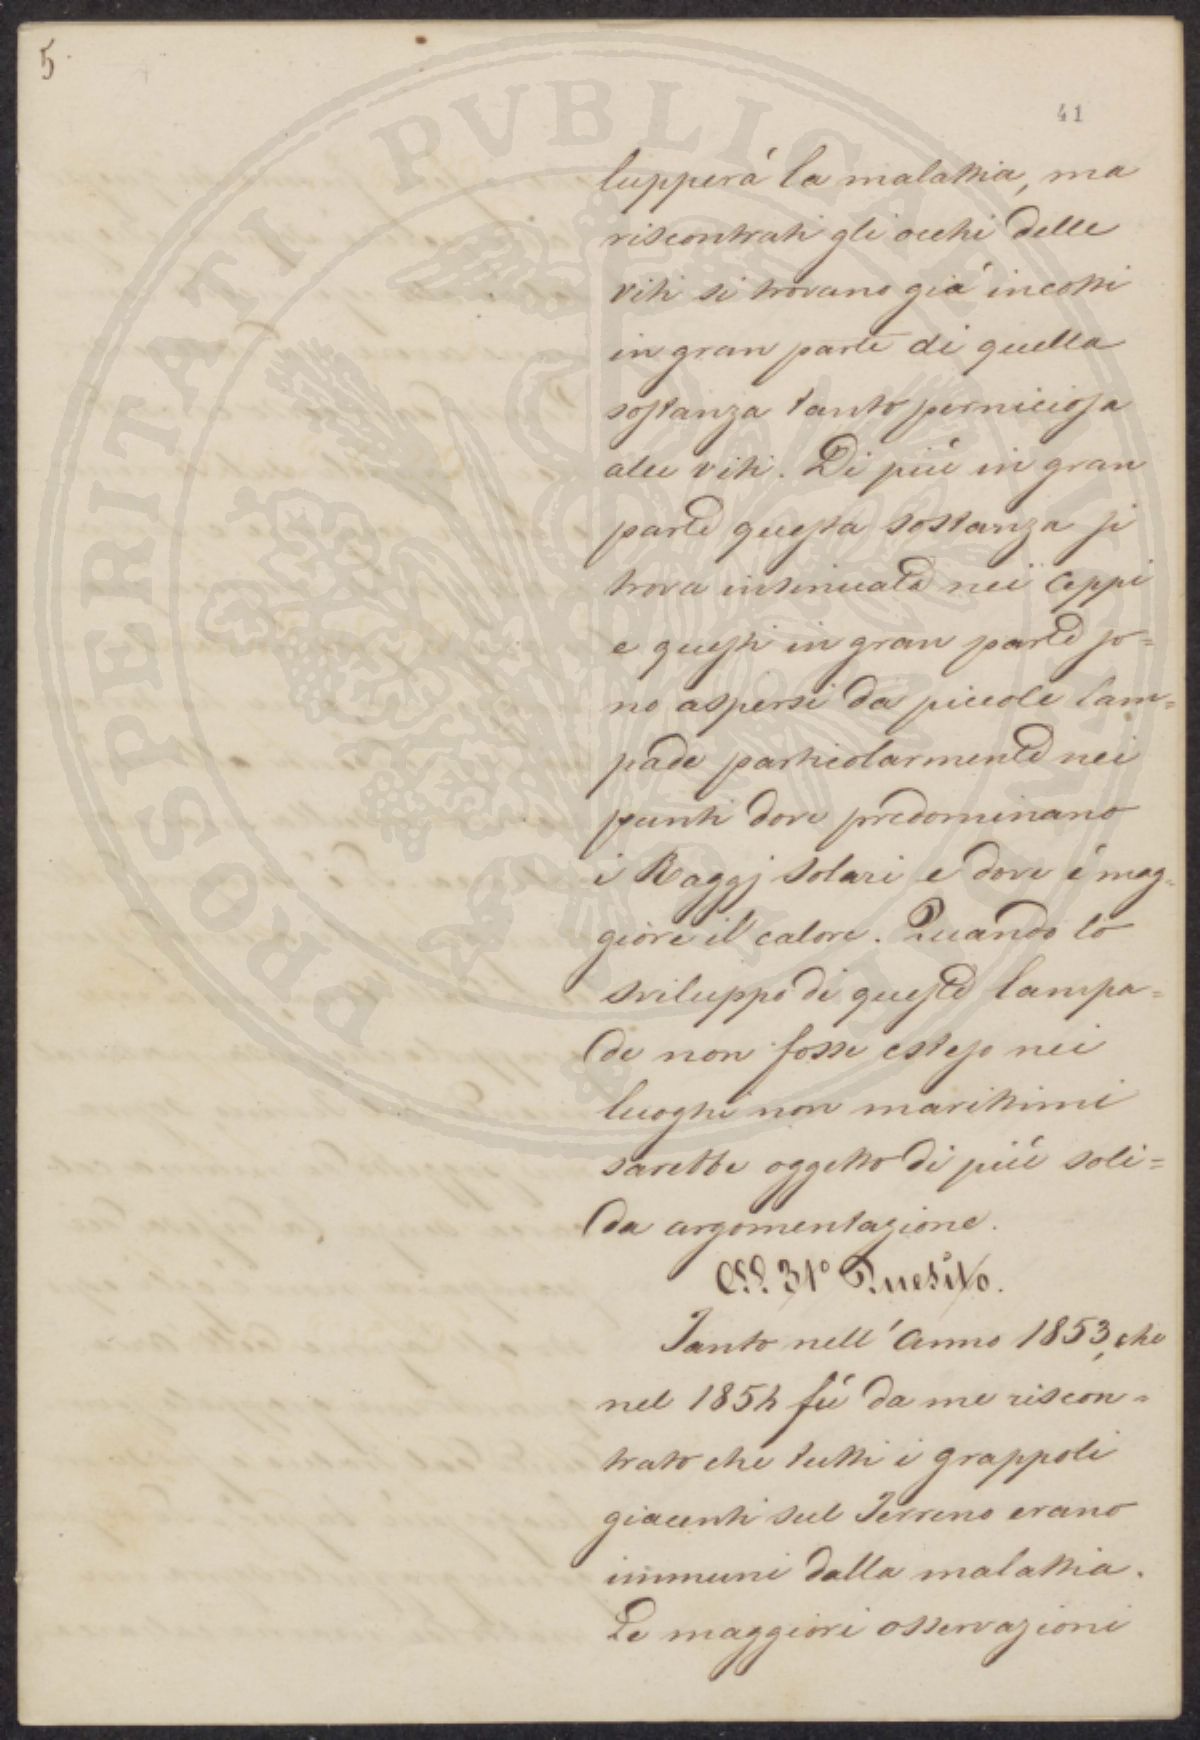 5
41
PROSPERITATI PVBLICAE
lupperá la malattia, ma
riscontrati gli occhi delle
viti si trovano giá incotti
in gran parte di quella
sostanza tanto perniciosa
alle viti. Di piú in gran
parte questa sostanza si
trova insinuata nei ceppi
e questi in gran parte so=
no aspersi da piccole lam=
pade particolarmente nei
punti dove predominano
i Raggj solari e dove é mag=
giore il calore. Quando lo
sviluppo di queste lampa=
de non fosse esteso nei
luoghi non marittimi
sarebbe oggetto di piú soli=
da argomentazione.
31º Quesito.
Tanto nell'anno 1853, che
nel 1854 fú da me riscon=
trato che tutti i grappoli
giacenti sul Terreno erano
immuni dalla malattia.
Le maggiori osservazioni